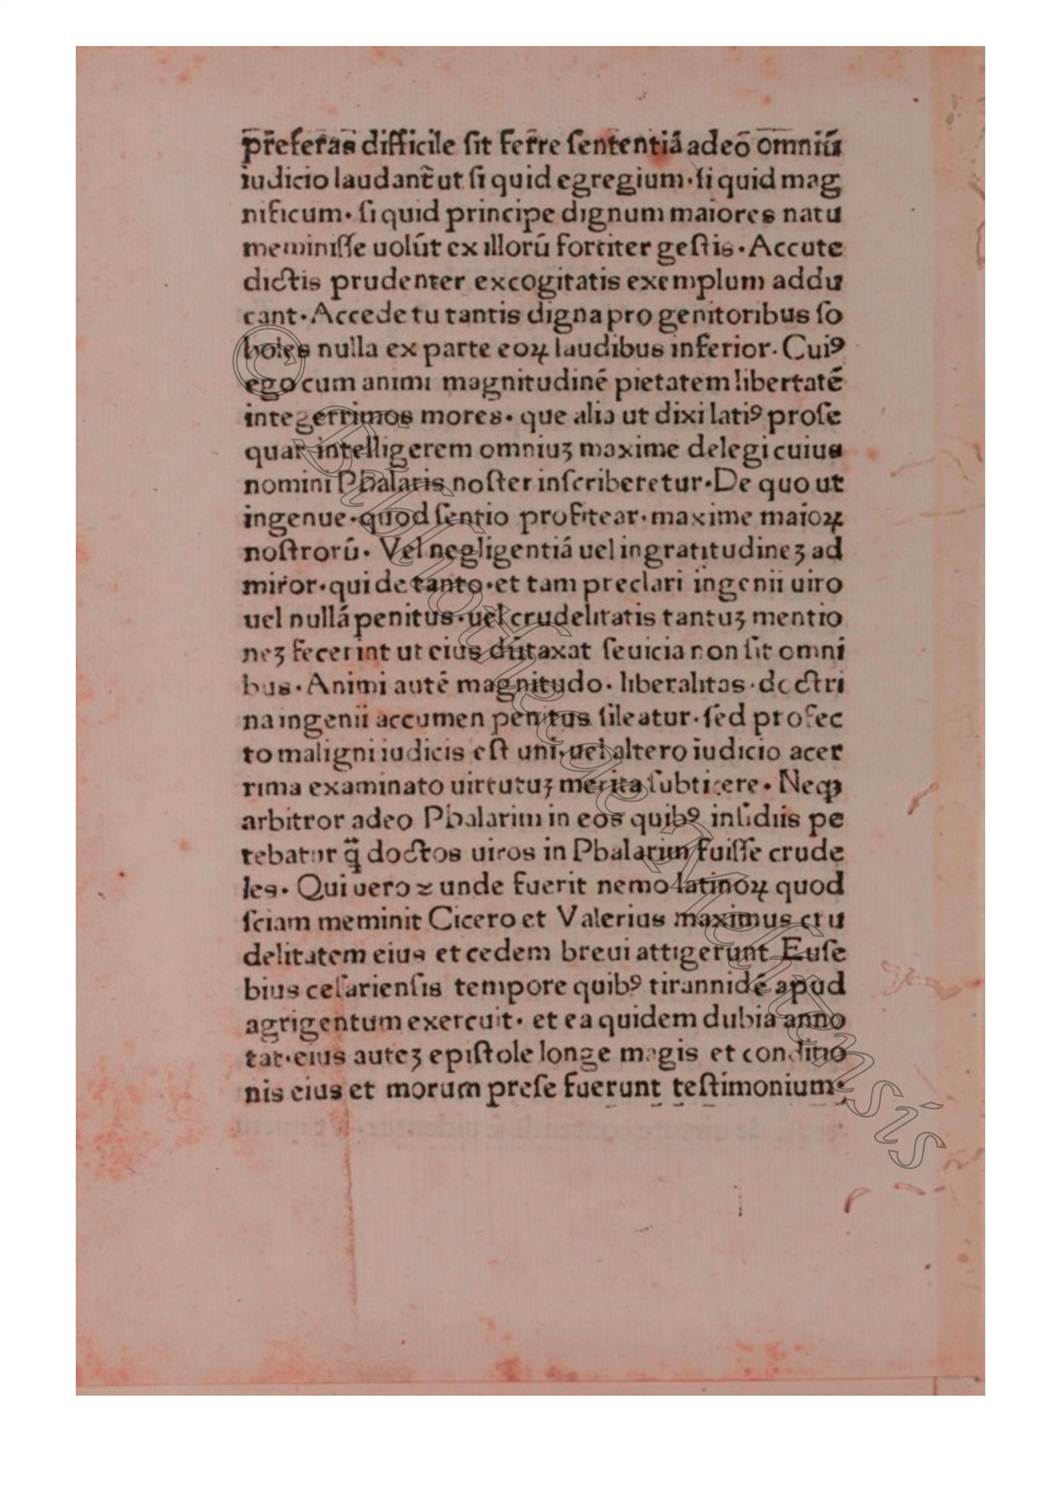 p̄referas difficile sit ferre sententiā adeō omniū
iudicio laudant̄ ut si quid egregium·si quid mag
nificum· si quid principe dignum maiores natu
meminisse uolūt ex illorū fortiter gestis·Accute
dictis prudenter excogitatis exemplum addu
cant·Accede tu tantis digna pro genitoribus so
boles nulla ex parte eoꝝ laudibus inferior·Cuiꝰ
ego cum animi magnitudinē pietatem libertatē
integerrimos mores· que alia ut dixi latiꝰ prose
quar intelligerem omniuꝫ maxime delegi cuius
nomini Phalaris noster inscriberetur·De quo ut
ingenue·quod sentio profitear·maxime maioꝝ
nostrorū· Vel negligentiā uel ingratitudineꝫ ad
miror·qui de tanto·et tam preclari ingenii uiro
uel nullā penitus·uel crudelitatis tantuꝫ mentio
neꝫ fecerint ut eius dūtaxat seuicia non sit omni
bus·Animi autē magnitudo·liberalitas·doctri
na ingenii accumen penitus sileatur·sed profec
to maligni iudicis est uni·uel altero iudicio acer
rima examinato uirtutuꝫ merita subticere·Neqꝫ
arbitror adeo Phalarim in eos quibꝰ insidiis pe
tebatur q̄ doctos uiros in Phalarim fuisse crude
les· Qui uero ⁊ unde fuerit nemo latinoꝝ quod
sciam meminit Cicero et Valerius maximus cru
delitatem eius et cedem breui attigerunt Euse
bius cesariensis tempore quibꝰ tirannidē apud
agrigentum exercuit· et ea quidem dubia anno
tat·eius auteꝫ epistole longe magis et conditio
nis eius et morum prese fuerunt testimonium·
© Bibliotheca Vaticana